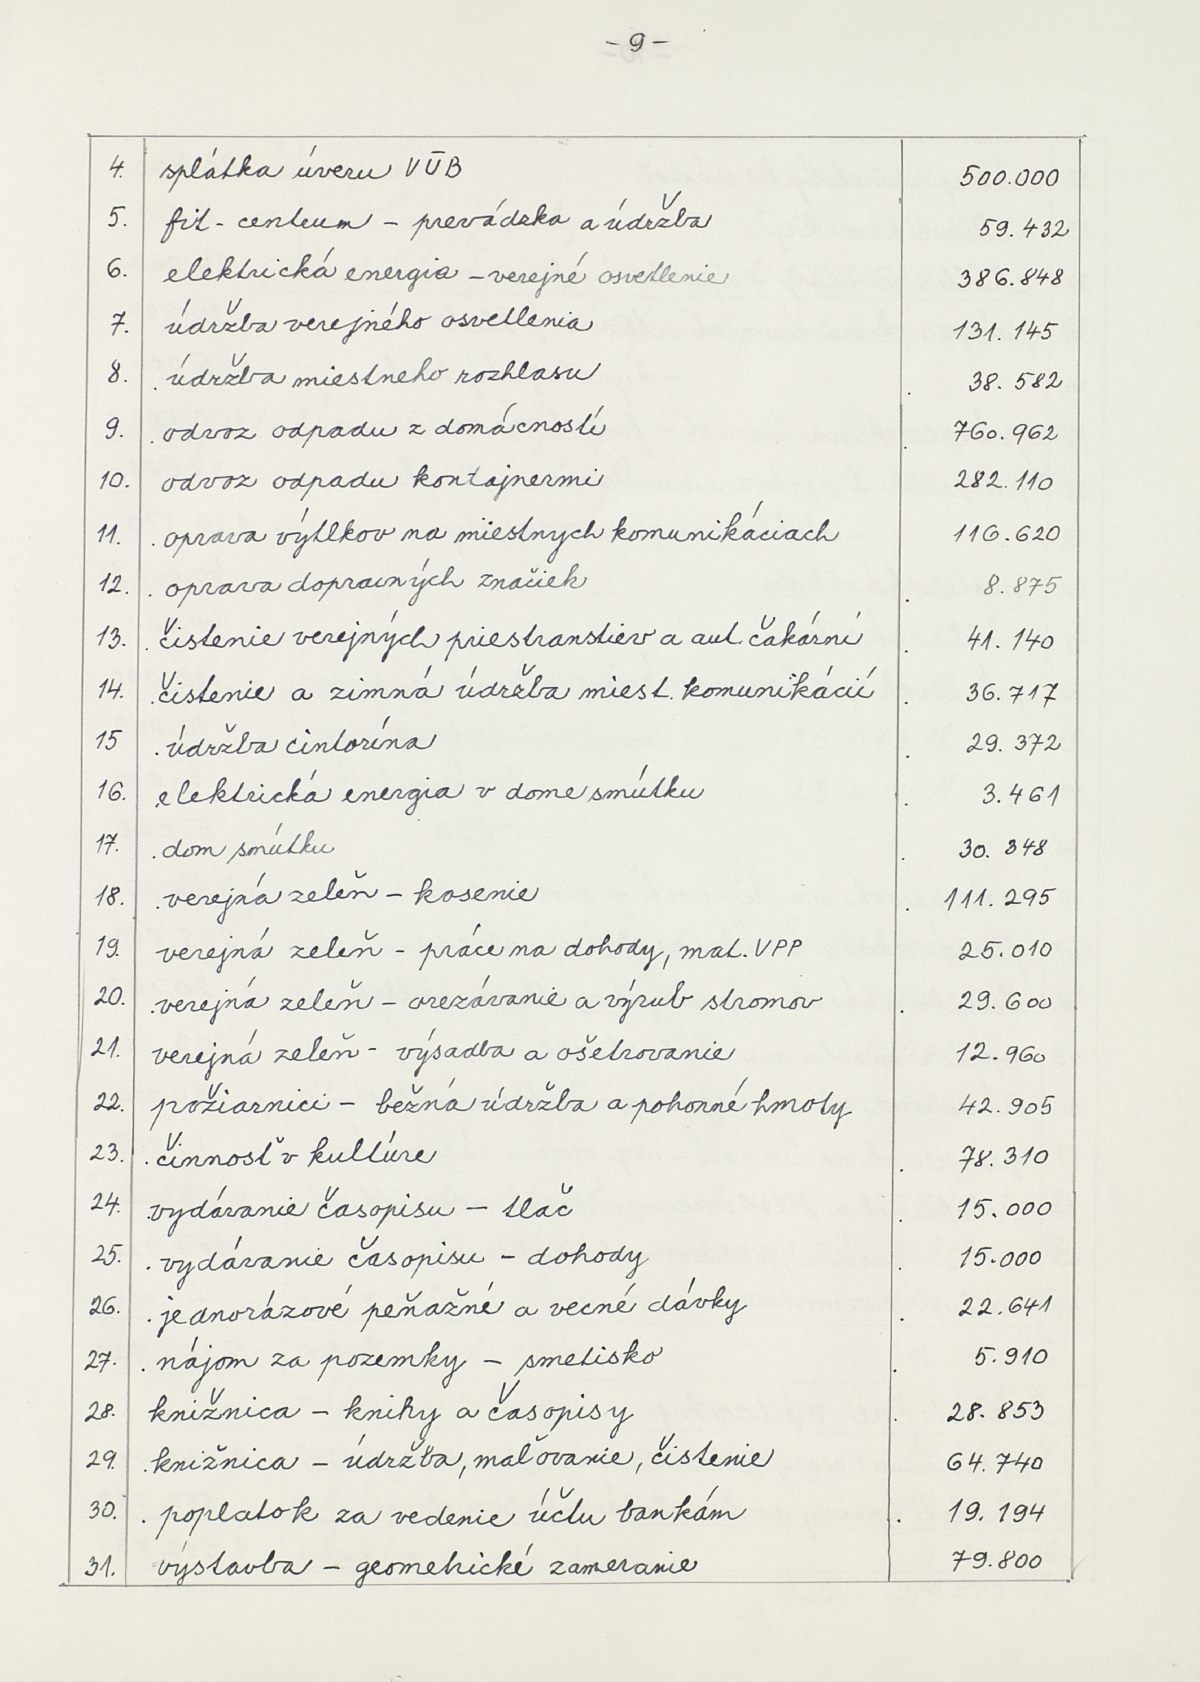 - 9 -
4. splátka úveru VÚB 500.000
5. fit - centrum - prevádzka a údržba 59.432
6. elektrická energia - verejné osvetlenie 386.848
7. údržba verejného osvetlenia 131.145
8. údržba miestneho rozhlasu 38.582
9. odvoz odpadu z domácností 760.962
10. odvoz odpadu kontajnermi 282.110
11. oprava výtlkov na miestnych komunikáciach 116.620
12. oprava dopravných značiek 8.875
13. čistenie verejných priestranstiev a aut. čakární 41.140
14. čistenie a zimná údržba miest. komunikácií 36.717
15 údržba cintorína 29.372
16. elektrická energia v dome smútku 3.461
17. dom smútku 30.348
18. verejná zeleň - kosenie 111.295
19. verejná zeleň - práce na dohody, mat. VPP 25.010
20. verejná zeleň - orezávanie a výrub stromov 29.600
21. verejná zeleň - výsadba a ošetrovanie 12.960
22. požiarnici - bežná údržba a pohonné hmoty 42.905
23. činnosť v kultúre 78.310
24. vydávanie časopisu - tlač 15.000
25. vydávanie časopisu - dohody 15.000
26. jednorázové peňažné a vecné dávky 22.641
27. nájom za pozemky - smetisko 5.910
28. knižnica - knihy a časopisy 28.853
29. knižnica - údržba, maľovanie, čistenie 64.740
30. poplatok za vedenie účtu bankám 19.194
31. výstavba - geometrické zameranie 79.800